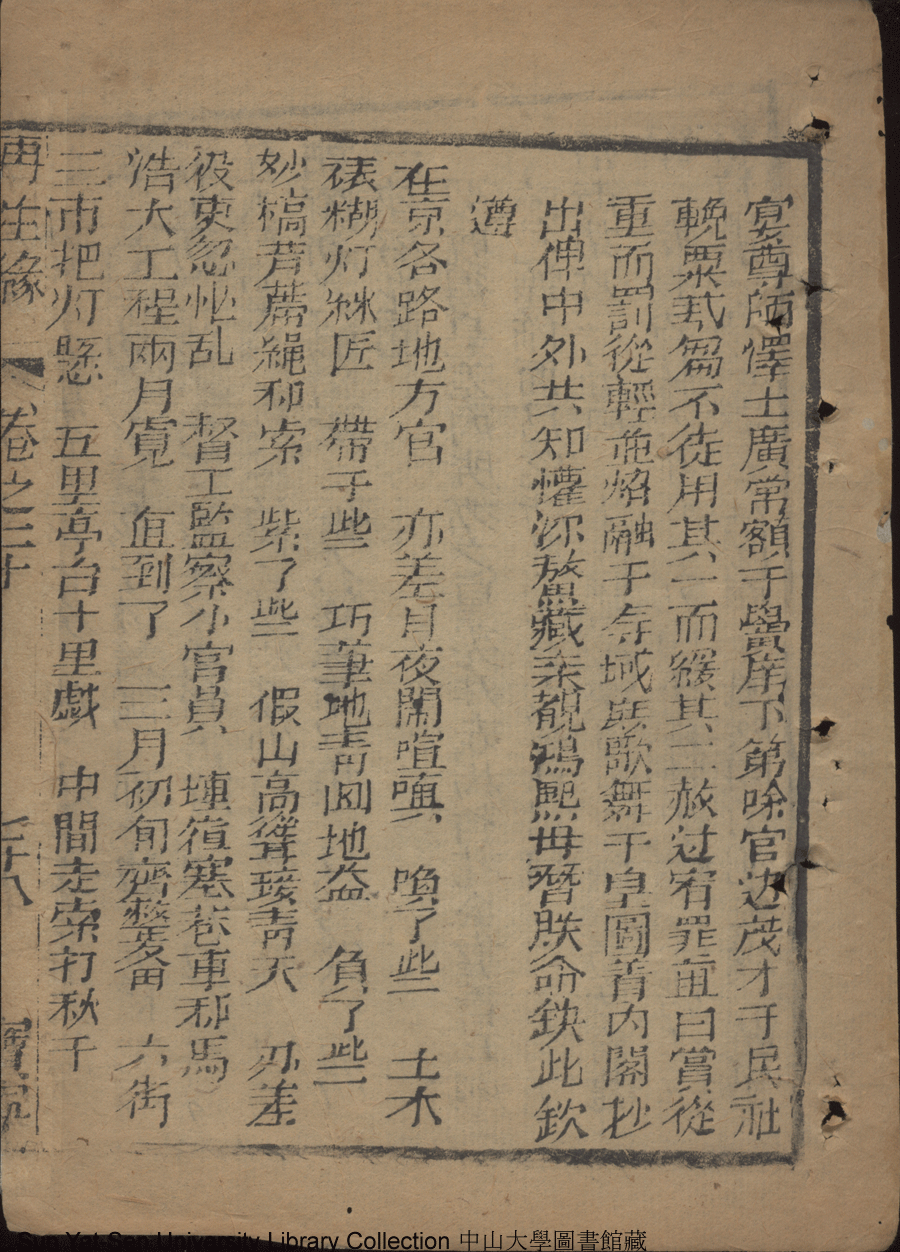 宴尊師懌士廣常額于黌庠下第唋官边茂才于民社
輓粟丮芻不徒用其一而緩其二赦过宥罪亩曰賞從
重而罰從輕 融于 域 歌舞于皇圖着内閣抄
出俾中外共知懽 藏亲覩鴻熙毋 朕命鈌此欽
遵
在京各路地方官 亦差日夜閙喧 喚了些 土木
裱糊灯 匠 帶于些 巧筆 地青 地 負了些
妙槁 繩和索 紮了些 假山高聳接青天 差
役吏忽忙乱 督工監察小官員 塞巷車和馬
浩大工程兩月寛 直到了 三月初旬齊整备 六街
三市把灯懸 五里亭台十里戯 中間走索打秋千
再生緣 卷之二十 七十八 寶
Sun Yat-Sen University Library Collection 中山大學圖書館藏